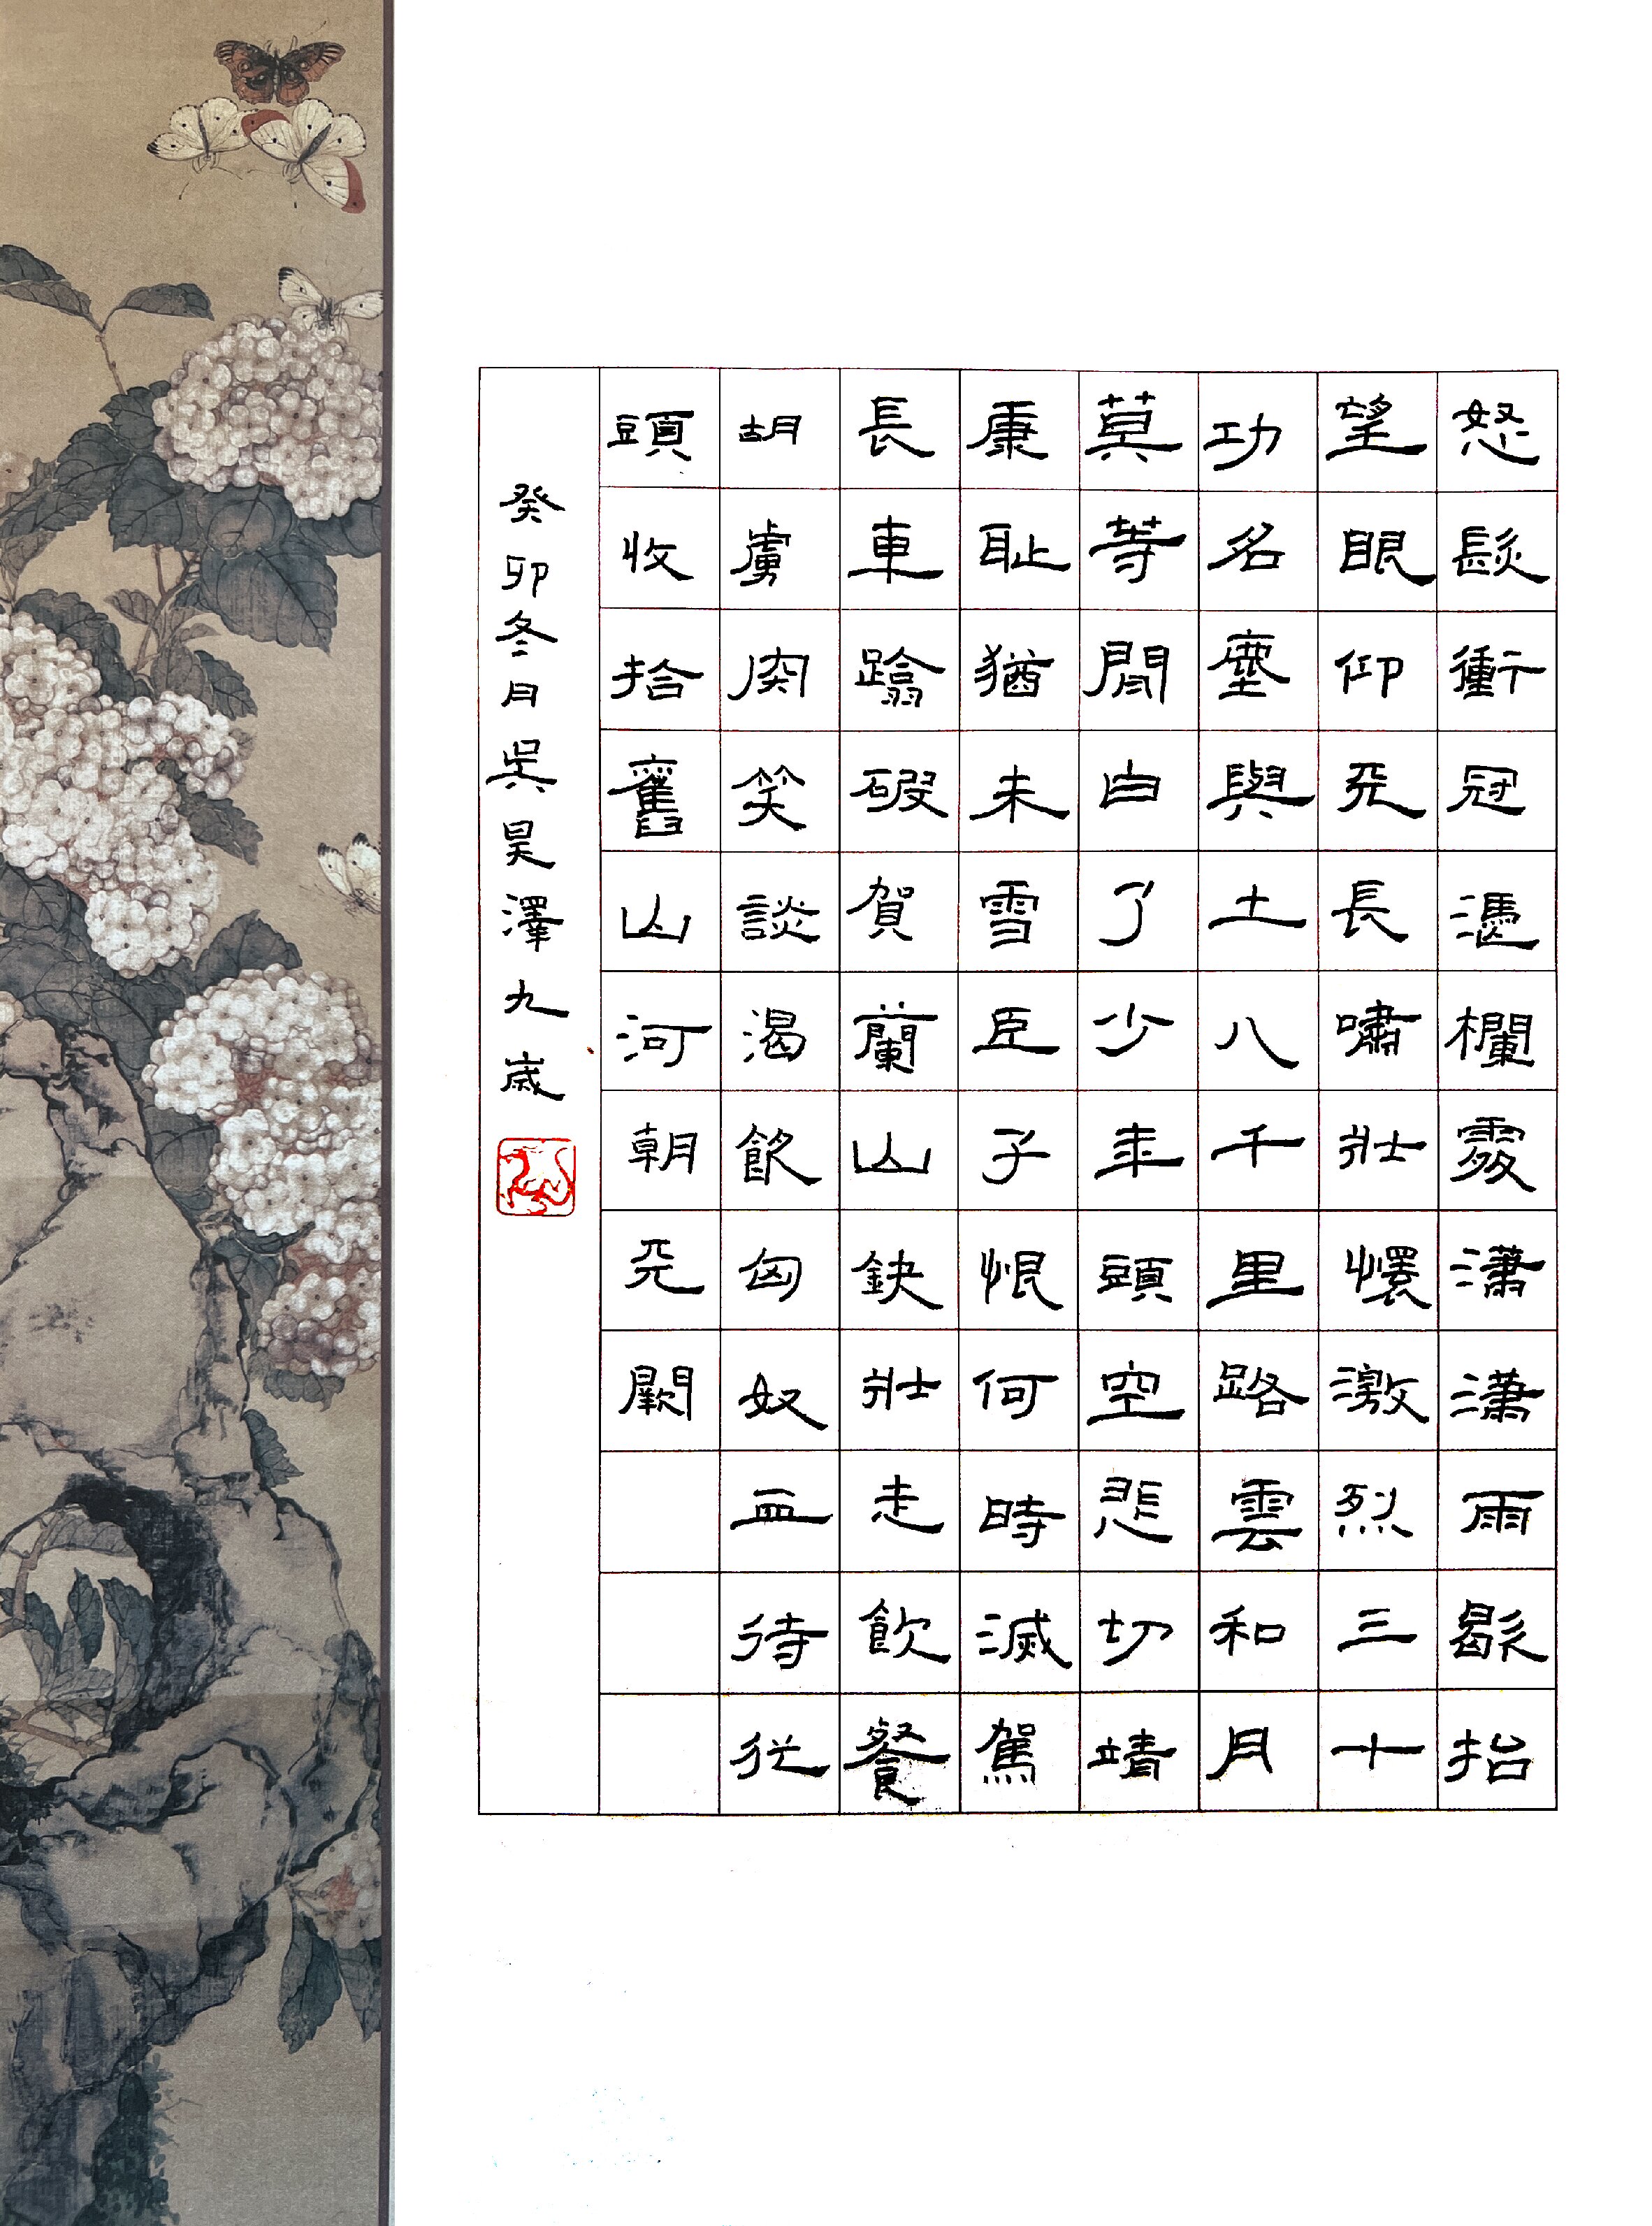 怒髮衝冠憑欄處潇潇雨歇抬
望眼仰天長嘯壯懷激烈三十
功名塵與土八千里路雲和月
莫等閒白了少年頭空悲切靖
康耻猶未雪臣子恨何時滅駕
長車蹹破賀蘭山缺壯志飢餐
胡虜肉笑談渴飲匈奴血待從
頭收拾舊山河朝天闕
癸卯冬月吳昊澤九歲